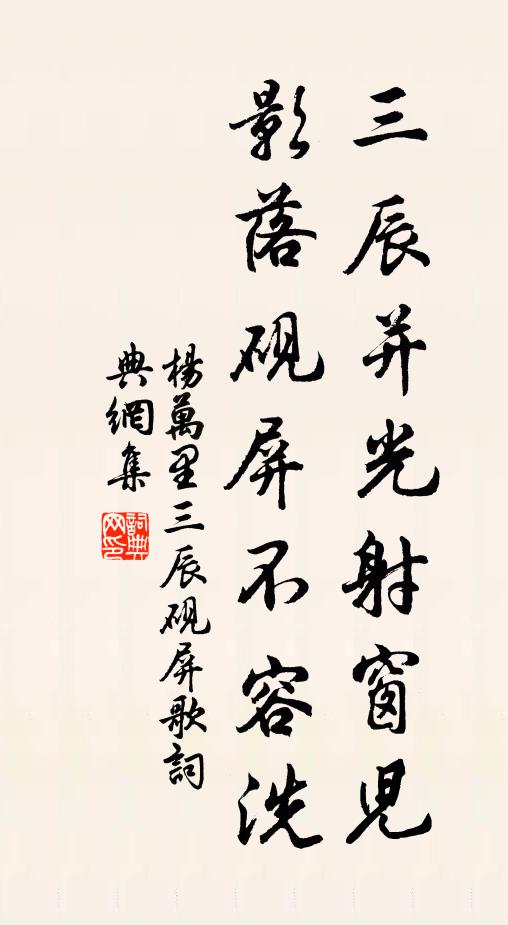 三辰并光射窗児
影落硯屏不容洗
楊萬里三辰硯屏歌詞
典網集
詞典
网印